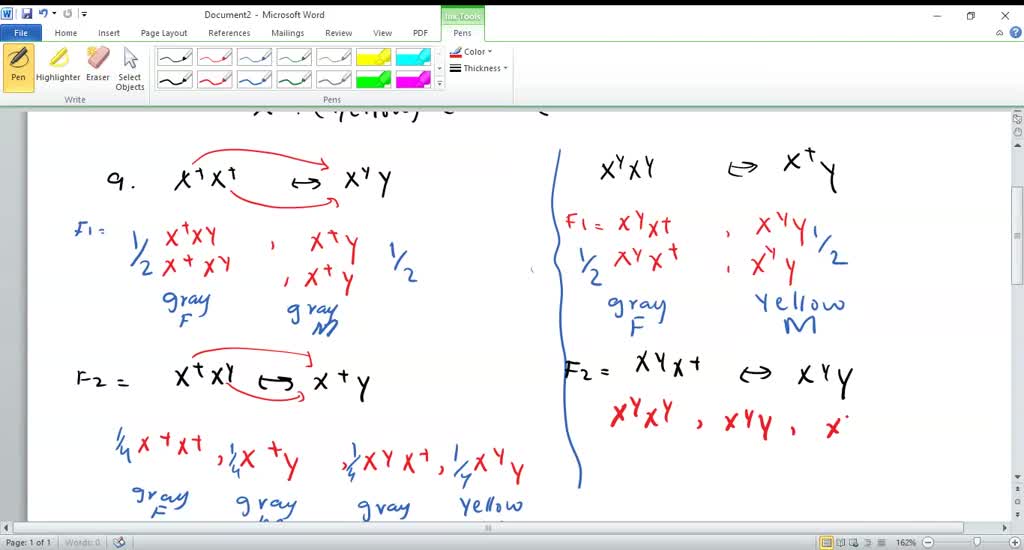 Document2 - Microsoft Word
Ink Tools
File Home Insert Page Layout References Mailings Review View PDF Pens
Pen Highlighter Eraser Select Objects
Color
Thickness
Write Pens
(Yellow)
a. X⁺X⁺ ↔ XʸY
F1 =
1/2 X⁺Xʸ , X⁺Y 1/2
X⁺Xʸ , X⁺Y
gray F gray M
F2 = X⁺Xʸ ↔ X⁺Y
1/4 X⁺X⁺ , 1/4 X⁺Y , 1/4 XʸX⁺ , 1/4 XʸY
gray F gray gray Yellow
XʸXʸ ↔ X⁺Y
F1 = XʸX⁺ , XʸY 1/2
1/2 XʸX⁺ , XʸY
gray F Yellow M
F2 = XʸX⁺ ↔ XʸY
XʸXʸ , XʸY , X
Page: 1 of 1 Words: 0 162%